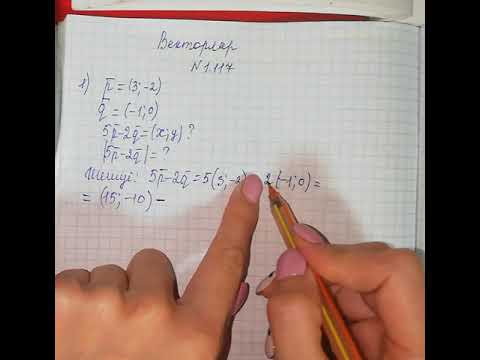 Векторлар
N 1.117
1) p̅ = (3; -2)
q̅ = (-1; 0)
5p̅ - 2q̅ = (x; y) ?
|5p̅ - 2q̅| = ?
Шешуі: 5p̅ - 2q̅ = 5(3; -2) 2(-1; 0) =
= (15; -10) -